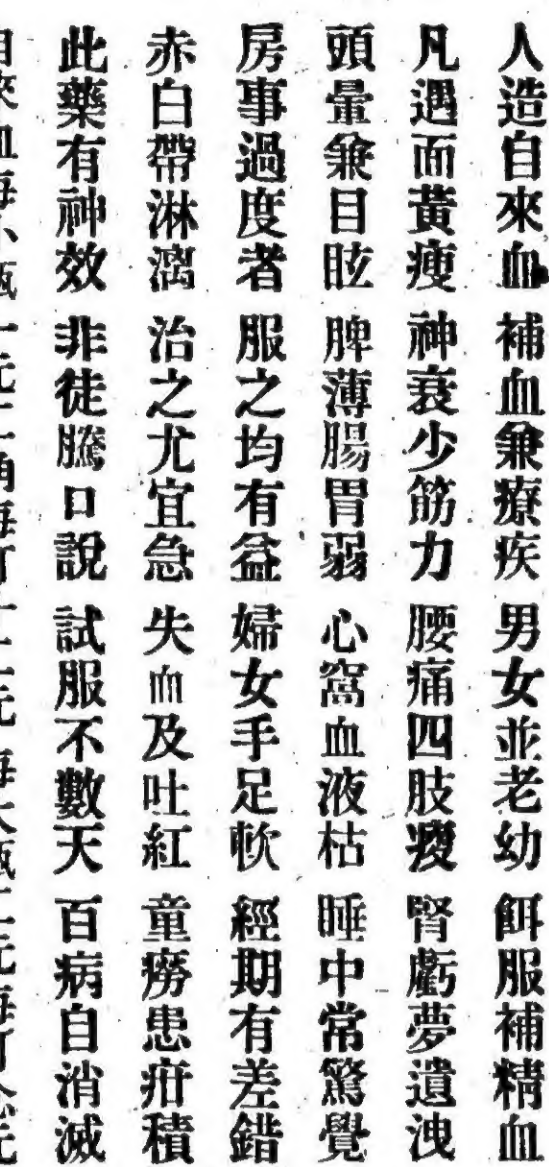 人造自來血 補血兼療疾 男女並老幼 餌服補精血
凡遇面黃瘦 神衰少筋力 腰痛四肢痠 腎虧夢遺洩
頭暈兼目眩 脾薄腸胃弱 心窩血液枯 睡中常驚覺
房事過度者 服之均有益 婦女手足軟 經期有差錯
赤白帶淋漓 治之尤宜急 失血及吐紅 童癆患疳積
此藥有神效 非徒騰口說 試服不數天 百病自消滅